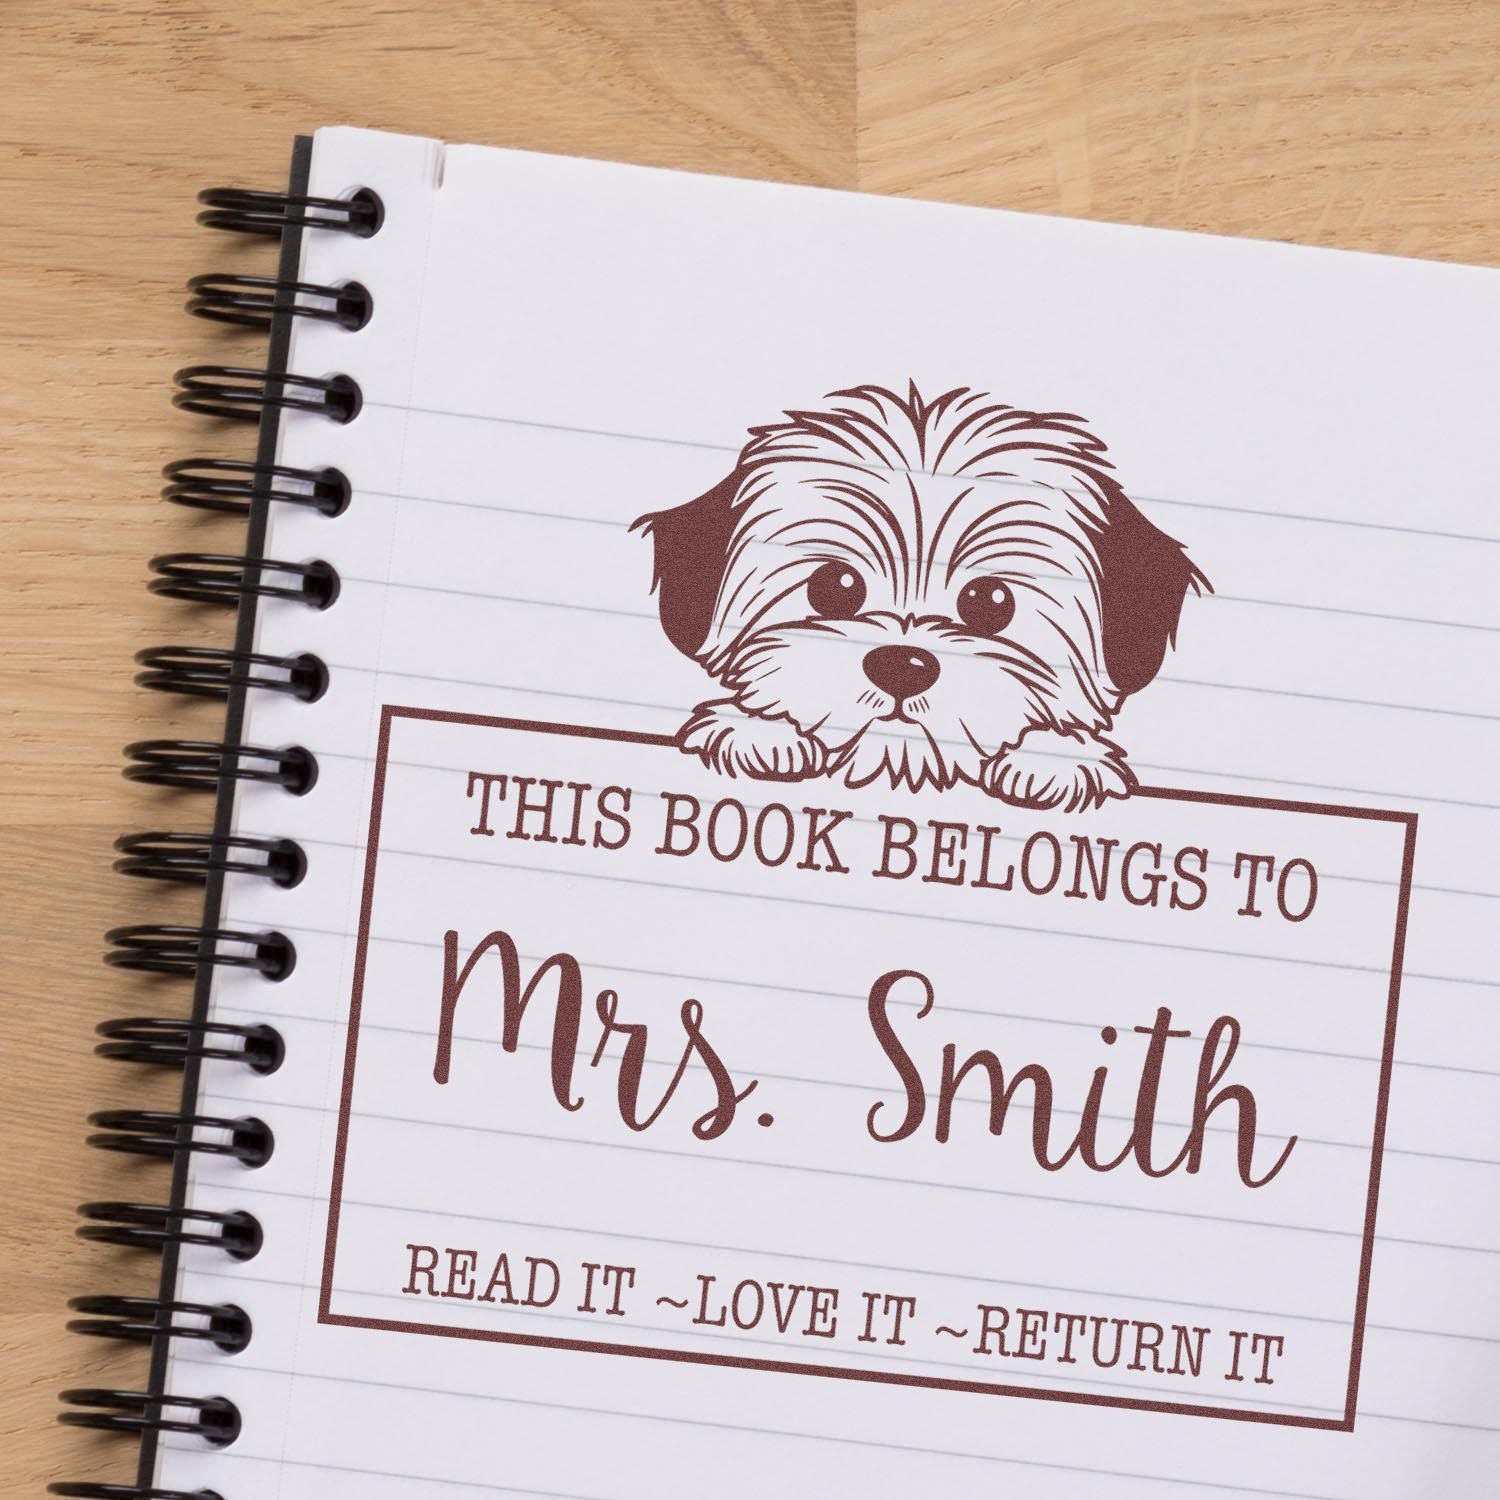 THIS BOOK BELONGS TO
Mrs. Smith
READ IT ~LOVE IT ~RETURN IT